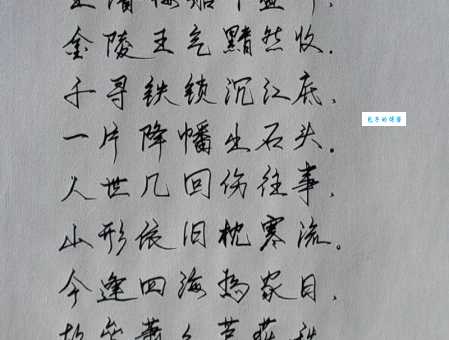 金陵王气黯然收.
千寻铁锁沉江底,
一片降幡出石头。
人世几回伤往事,
山形依旧枕寒流。
今逢四海为家日,